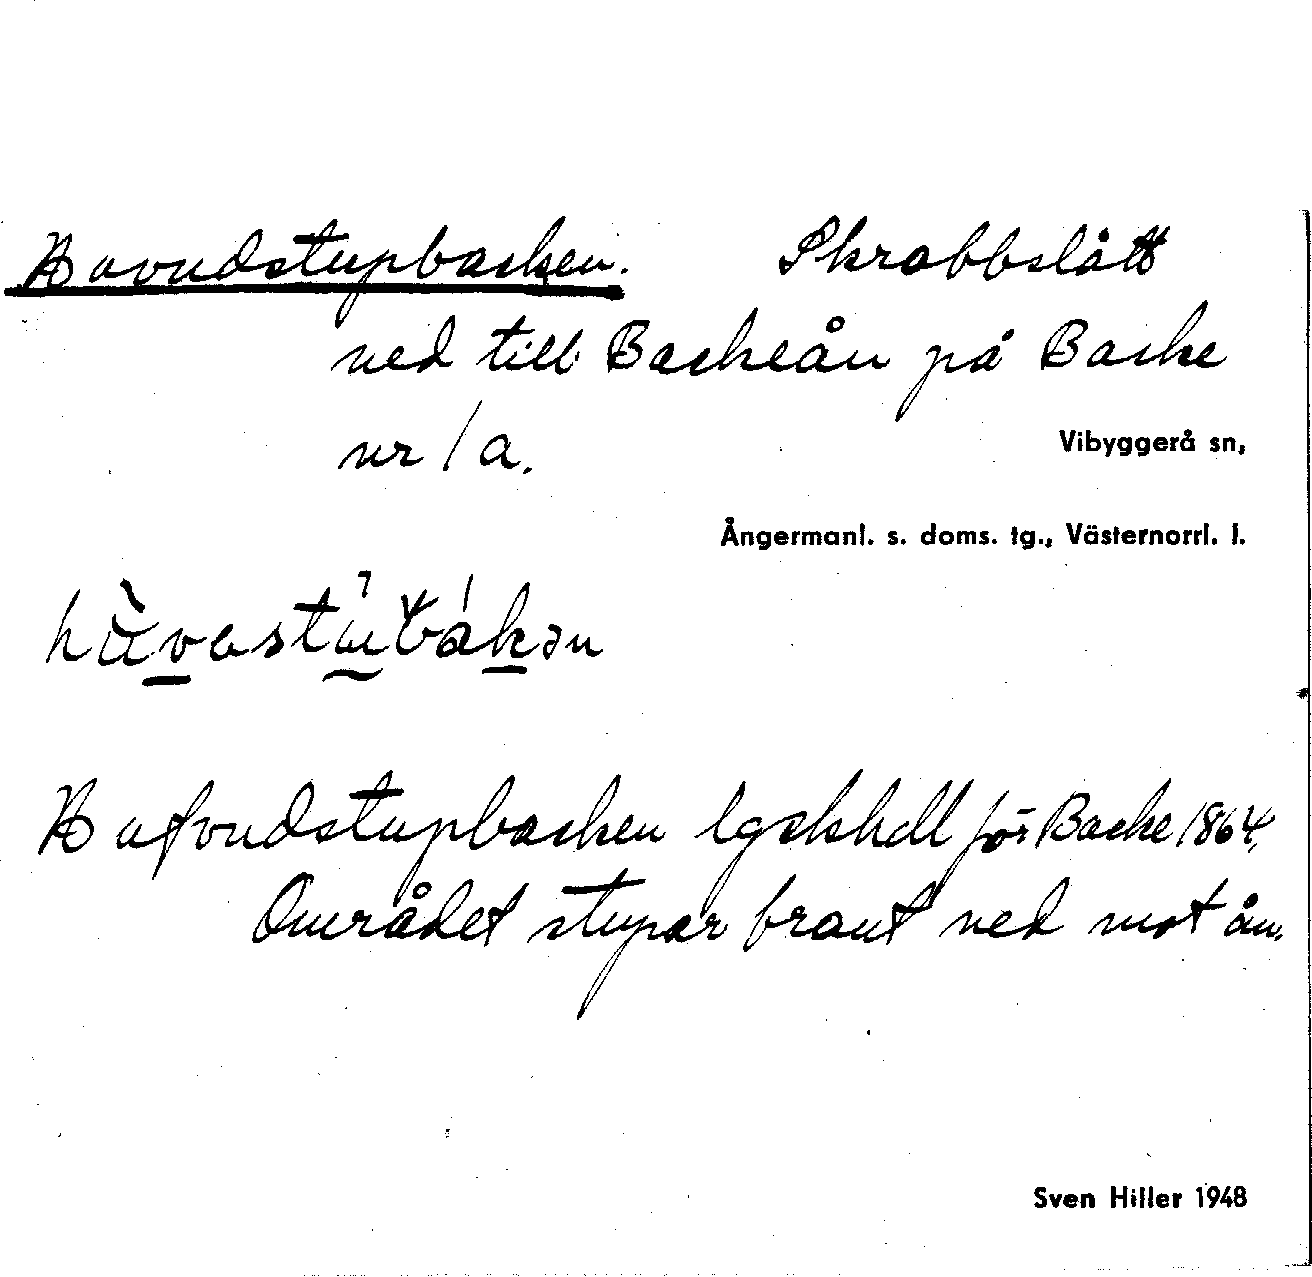 Huvudstupbacken. Skrabbslått
ned till Backeån på Backe
nr 1a.
Vibyggerå sn,
Ångermanl. s. doms. tg., Västernorrl. l.
Hufvudstupbacken lgskhdl för Backe 1864.
Området stupar brant ned mot ån.
Sven Hiller 1948